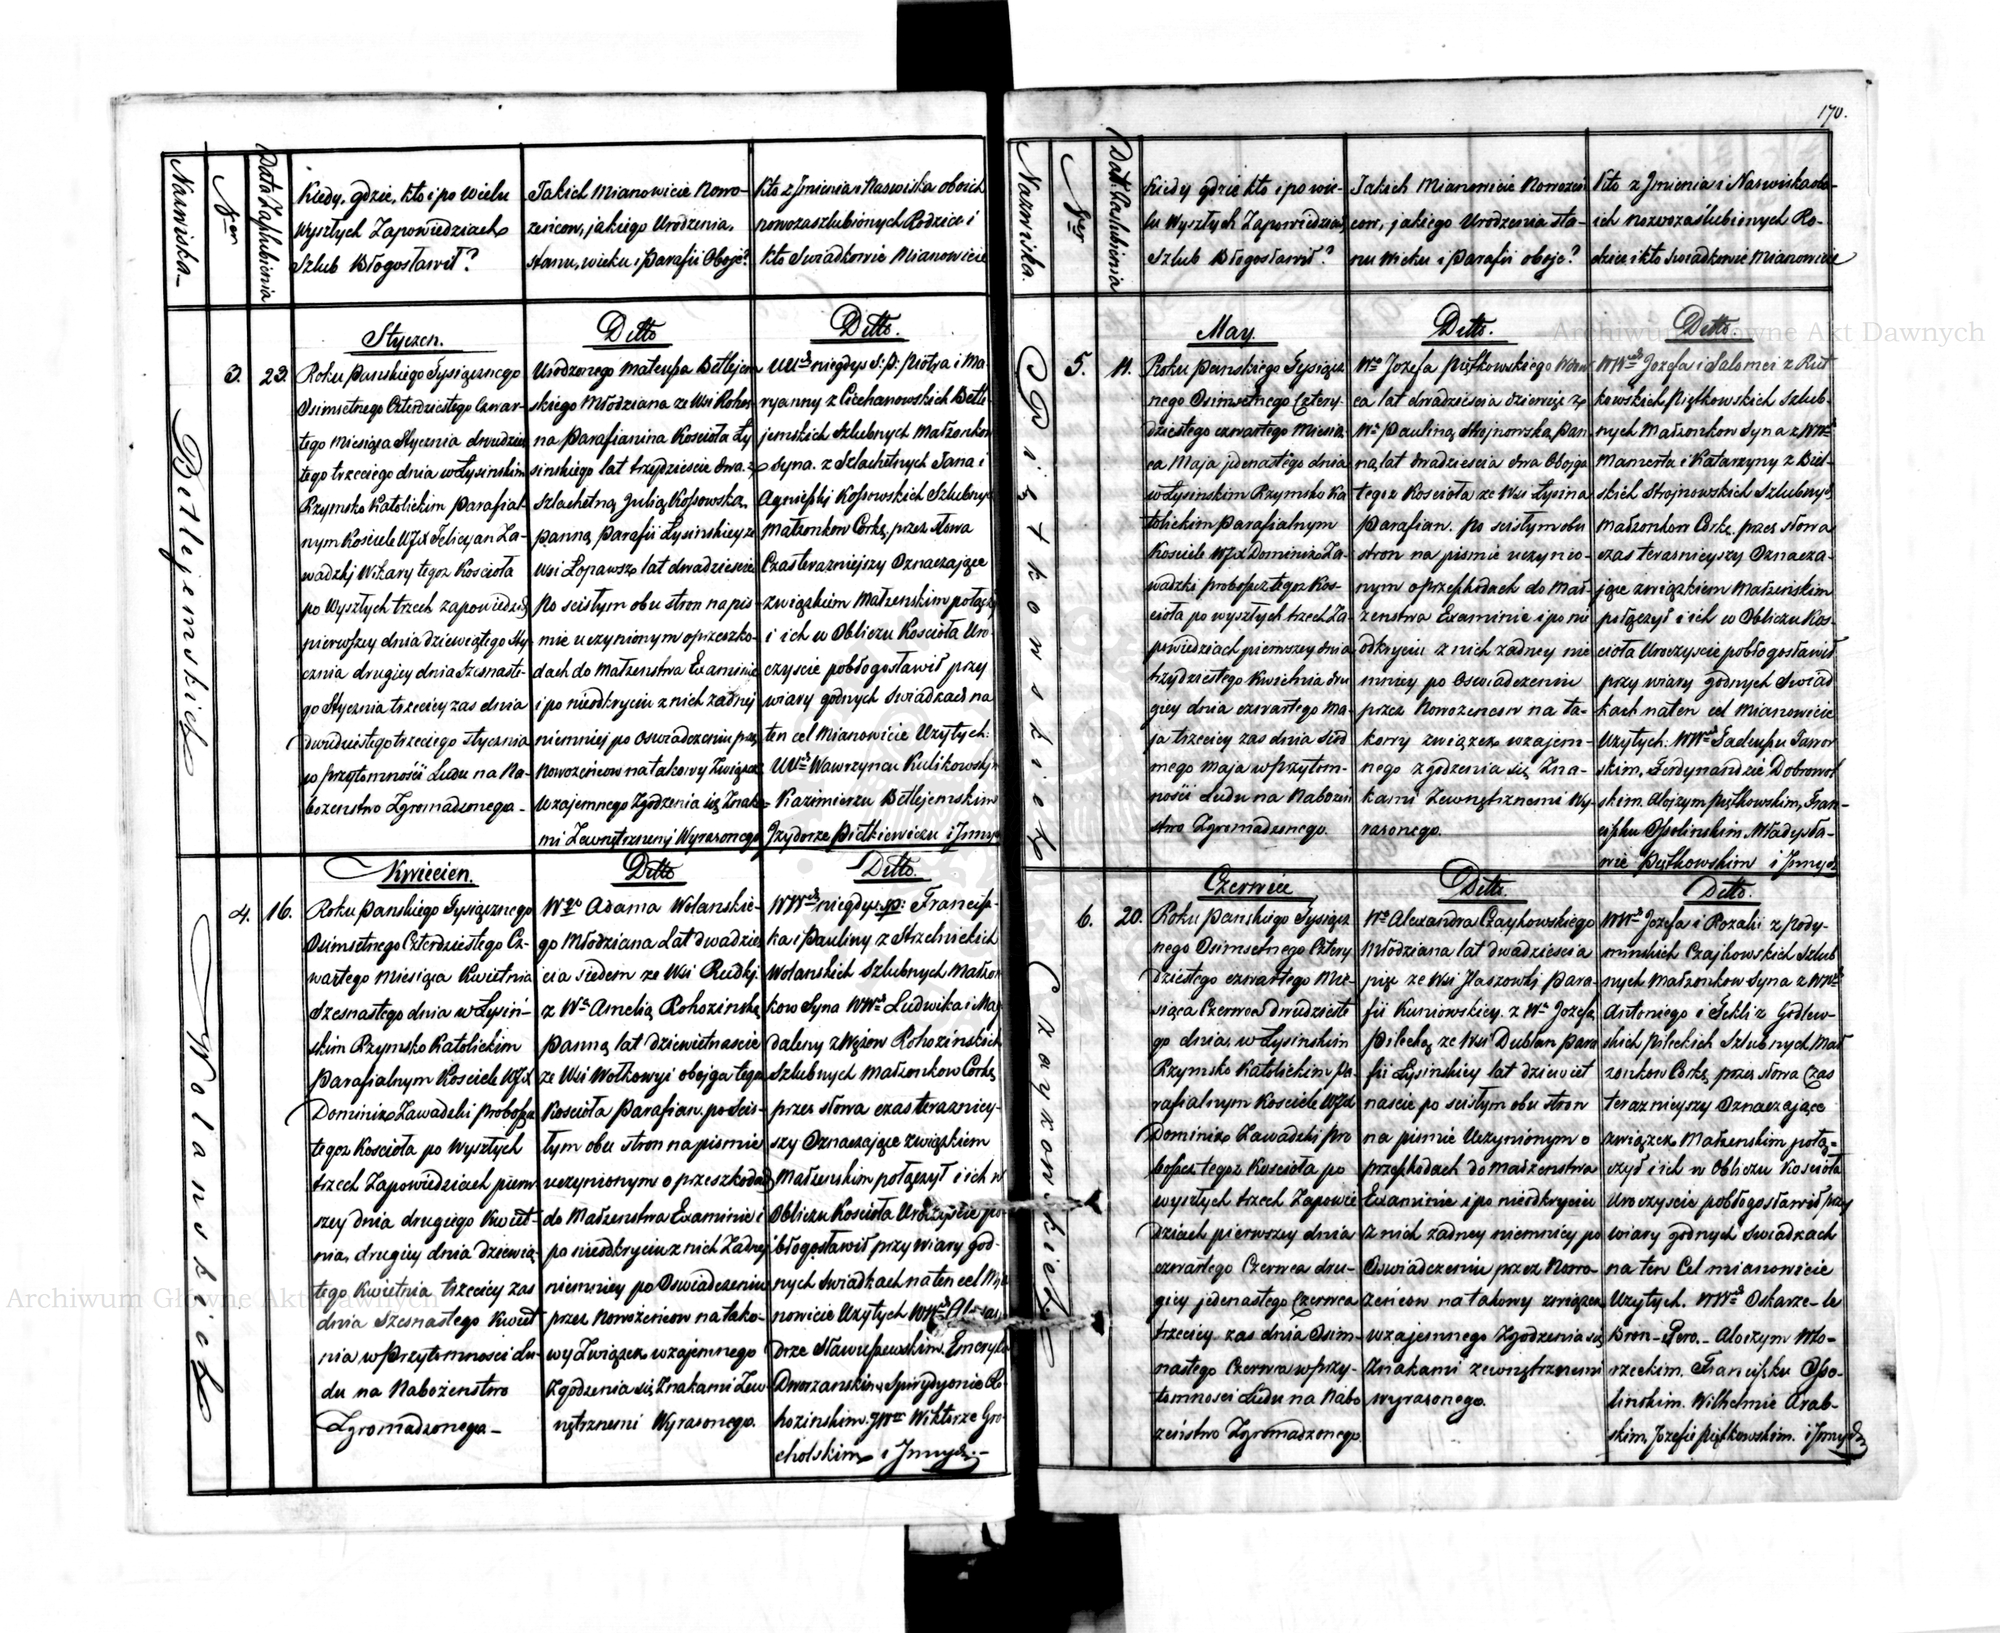 170.
Nazwiska
Nren
Data Zaszlubienia
Kiedy, gdzie, kto i po wielu
Wyszłych Zapowiedziach
Szlub Błogosławił?
Jakich Mianowicie Nowo-
żeńcow, jakiego Urodzenia,
stanu, wieku i Parafii Oboje?
Kto z Jmienia i Nazwiska oboich
nowozaszlubionych Rodzice i
kto Swiadkowie Mianowicie
Betlejemskich
3.
23.
Styczeń.
Roku Panskiego Tysiącznego
Osimsetnego Czterdziestego Czwar-
tego Miesiąca Stycznia dwudzies
tego trzeciego dnia w Łysinskim
Rzymsko Katolickim Parafial-
nym Kosciele WJX Felicyan Za-
wadzki Wikary tegoż Koscioła
po Wyszłych trzech zapowiedziach
pierwszey dnia dziewiątego Sty-
cznia drugiey dnia Szesnaste-
go Stycznia trzeciey zas dnia
dwudziestego trzeciego Stycznia
po przytomności Ludu na Na-
bożenstwo Zgromadzonego-
Ditto
Urodzonego Mateusza Betlejem
skiego Młodziana ze Wsi Rohoz-
na Parafianina Kościoła Ły
sinskiego lat trzydzieście dwa. z
Szlachetną Julią Kossowską,
Panną, Parafii Łysinskiey ze
Wsi Łopawsze lat dwadzieście
Po scisłym obu stron na pis-
mie uczynionym o przeszko-
dach do Małżenstwa Examinie
i po nieodkryciu z nich żadnej
niemniej po Oswiadczeniu przez
Nowożeńcow na takowy Związek
Wzajemnego Zgodzenia się Znaka-
mi Zewnętrznemi Wyrażonego
Ditto.
UUch niegdys S: P: Piotra i Ma
ryanny z Ciechanowskich Betle
jemskich Szlubnych Małżonkow
Syna. z Szlachetnych Jana i
Agnieszki Kossowskich Szlubnych
Małżonkow Corkę, przez słowa
Czas teraźniejszy Oznaczające
związkiem Małżenskim połączył
i ich w Obliczu Kosciola Uro-
czyscie pobłogosławił przy
wiary godnych Swiadkach na
ten cel Mianowicie Użytych:
UUch Wawrzyncu Kulikowskim
Kazimierzu Betlejemskim
Jzydorze Pietkiewiczu i Jnnych
Wolanskich
4.
16.
Kwiecien.
Roku Panskiego Tysiącznego
Osimsetnego Czterdziestego Cz-
wartego Miesiąca Kwietnia
Szesnastego dnia w Łysiń-
skim Rzymsko Katolickim
Parafialnym Kosciele WJX
Dominik Zawadzki Proboszcz
tegoż Kosciola po Wyszłych
trzech Zapowiedziach pierw
szey dnia drugiego Kwiet-
nia, drugiey dnia dziewią-
tego Kwietnia trzeciey zas
dnia Szesnastego Kwiet
nia w Przytomnosci Lu-
du na Nabożenstwo
Zgromadzonego-
Ditto
Wgo Adama Wolanskie-
go Młodziana Lat dwadzieś
cia siedem ze Wsi Rudki
z Wą Amelią Rohozińską
Panną lat dziewietnaście
ze Wsi Wołkowyi obojga tegoż
Kosciola Parafian. po scis-
łym obu stron na pismie
uczynionym o przeszkodach
do Małżenstwa Examinie i
po nieodkryciu z nich Żadnej
niemniey po Oswiadczeniu
przez Nowożeńcow na tako-
wy Związek wzajemnego
Zgodzenia się Znakami Zew-
nętrznemi Wyrażonego.
Ditto.
WWch niegdys SP: Francisz-
ka i Pauliny z Strzelnickich
Wolanskich Szlubnych Małżon
kow Syna WWch Ludwika i Mag
daleny z Wężow Rohozińskich
Szlubnych Małżonkow Corkę
przez słowa czas teraźniey-
szy Oznaczające związkiem
Małżenskim połączył i ich w
Obliczu Kosciola Uroczyscie po-
błogosławił przy wiary god-
nych Swiadkach na ten cel Mia
nowicie Użytych WWch Alexan
drze Sławuszewskim, Emeryku
Dworzanskim, Spirydyonie Ro-
hozinskim, JWm Wiktorze Gro-
cholskim i Jnnych.-
Nazwiska.
Nren
Data Zaslubienia
Kiedy gdzie kto i po wie-
lu Wyszłych Zapowiedziach
Szlub Błogosławił?
Jakich Mianowicie Nowożeń
cow, jakiego Urodzenia sta-
nu Wieku i Parafii oboje?
Kto z Jmienia i Nazwiska obo-
ich nowozaślubionych Ro-
dzice i kto Swiadkowie Mianowicie
Piętkowskich
5.
11.
May.
Roku Panskiego Tysiącz
nego Osimsetnego Cztery
dziestego czwartego Miesią
ca Maja jedenastego dnia
w Łysinskim Rzymsko Ka
tolickim Parafialnym
Kosciele WJX Dominik Za-
wadzki Proboszcz tegoż Kos-
ciola po wyszłych trzech Za-
powiedziach pierwszey dnia
trzydziestego Kwietnia dru
giey dnia czwartego Ma-
ja trzeciey zas dnia siód
mego Maja w Przytom-
ności Ludu na Nabożeń
stwo Zgromadzonego.
Ditto.
Wo Jozefa Piętkowskiego Wdow
ca lat dwadzieścia dziewięć z
Wą Pauliną Strojnowską Pan
ną, lat dwadzieścia dwa Obojga
tegoż Kosciola ze Wsi Łysina
Parafian. Po scisłym obu
stron na pismie uczynio-
nym o przeszkodach do Mał-
żenstwa Examinie i po nie
odkryciu z nich żadney nie
mniey po Oswiadczeniu
przez Nowożencow na ta-
kowy związek wzajem-
nego zgodzenia się Zna-
kami Zewnętrznemi Wy-
rażonego.
Ditto.
WWch Jozefa i Salomei z Rut
kowskich Piętkowskich Szlub-
nych Małżonkow Syna z WWch
Mamerta i Katarzyny z Biel-
skich Strojnowskich Szlubnych
Małżonkow Corkę, przez słowa
czas teraźnieyszy Oznacza-
jące związkiem Małżenskim
połączył i ich w Obliczu Kos-
ciola Uroczyscie pobłogosławił
przy wiary godnych Swiad
kach na ten cel Mianowicie
Użytych: WWch Tadeuszu Jawor
skim, Ferdynandzie Dobrowol
skim, Alojzym Piętkowskim, Fran-
ciszku Opolinskim, Władysła-
wie Piętkowskim i Jnnych
Czaykowskich
6.
20.
Czerwiec
Roku Panskiego Tysiącz
nego Osimsetnego Cztery
dziestego czwartego Mie-
siąca Czerwca Dwudzieste
go dnia, w Łysinskim
Rzymsko Katolickim Pa
rafialnym Kosciele WJX
Dominik Zawadzki Pro
boszcz tegoż Kosciola po
wyszłych trzech Zapowie
dziach pierwszey dnia
czwartego Czerwca dru-
giey jedenastego Czerwca
trzeciey zas dnia Osim-
nastego Czerwca w przy-
tomnosci Ludu na Nabo
żeństwo Zgromadzonego.
Ditto.
Wo Alexandra Czaykowskiego
Młodziana lat dwadzieścia
pięć ze Wsi Jłaszowki Para-
fii Kuniowskiey. z Wą Jozefą
Pilecką ze Wsi Dublan Para
fii Łysinskiey lat dziewięt
naście po scisłym obu stron
na pismie Uczynionym o
przeszkodach do Małżenstwa
Examinie i po nieodkryciu
z nich żadney niemniey po
Oswiadczeniu przez Nowo-
żeńcow na takowy związek
wzajemnego Zgodzenia się
Znakami zewnętrznemi
wyrażonego.
Ditto.
WWch Jozefa i Rozalii z Pody-
minskich Czajkowskich Szlub
nych Małżonkow Syna z WWch
Antoniego i Tekli z Godlew-
skich Pileckich Szlubnych Mał
żonkow Corkę, przez słowa Czas
teraznieyszy Oznaczające
związek Małżenskim połą-
czył i ich w Obliczu Kosciola
Uroczyscie pobłogosławił przy
wiary godnych Swiadkach
na ten Cel mianowicie
Użytych. WWch Oskarze-le
Bron-Pero.- Aloizym Mło-
rzeckim. Franciszku Opo-
linskim. Wilhelmie Arab-
skim, Jozefie Piętkowskim. i Jnnych
Archiwum Główne Akt Dawnych
Archiwum Główne Akt Dawnych